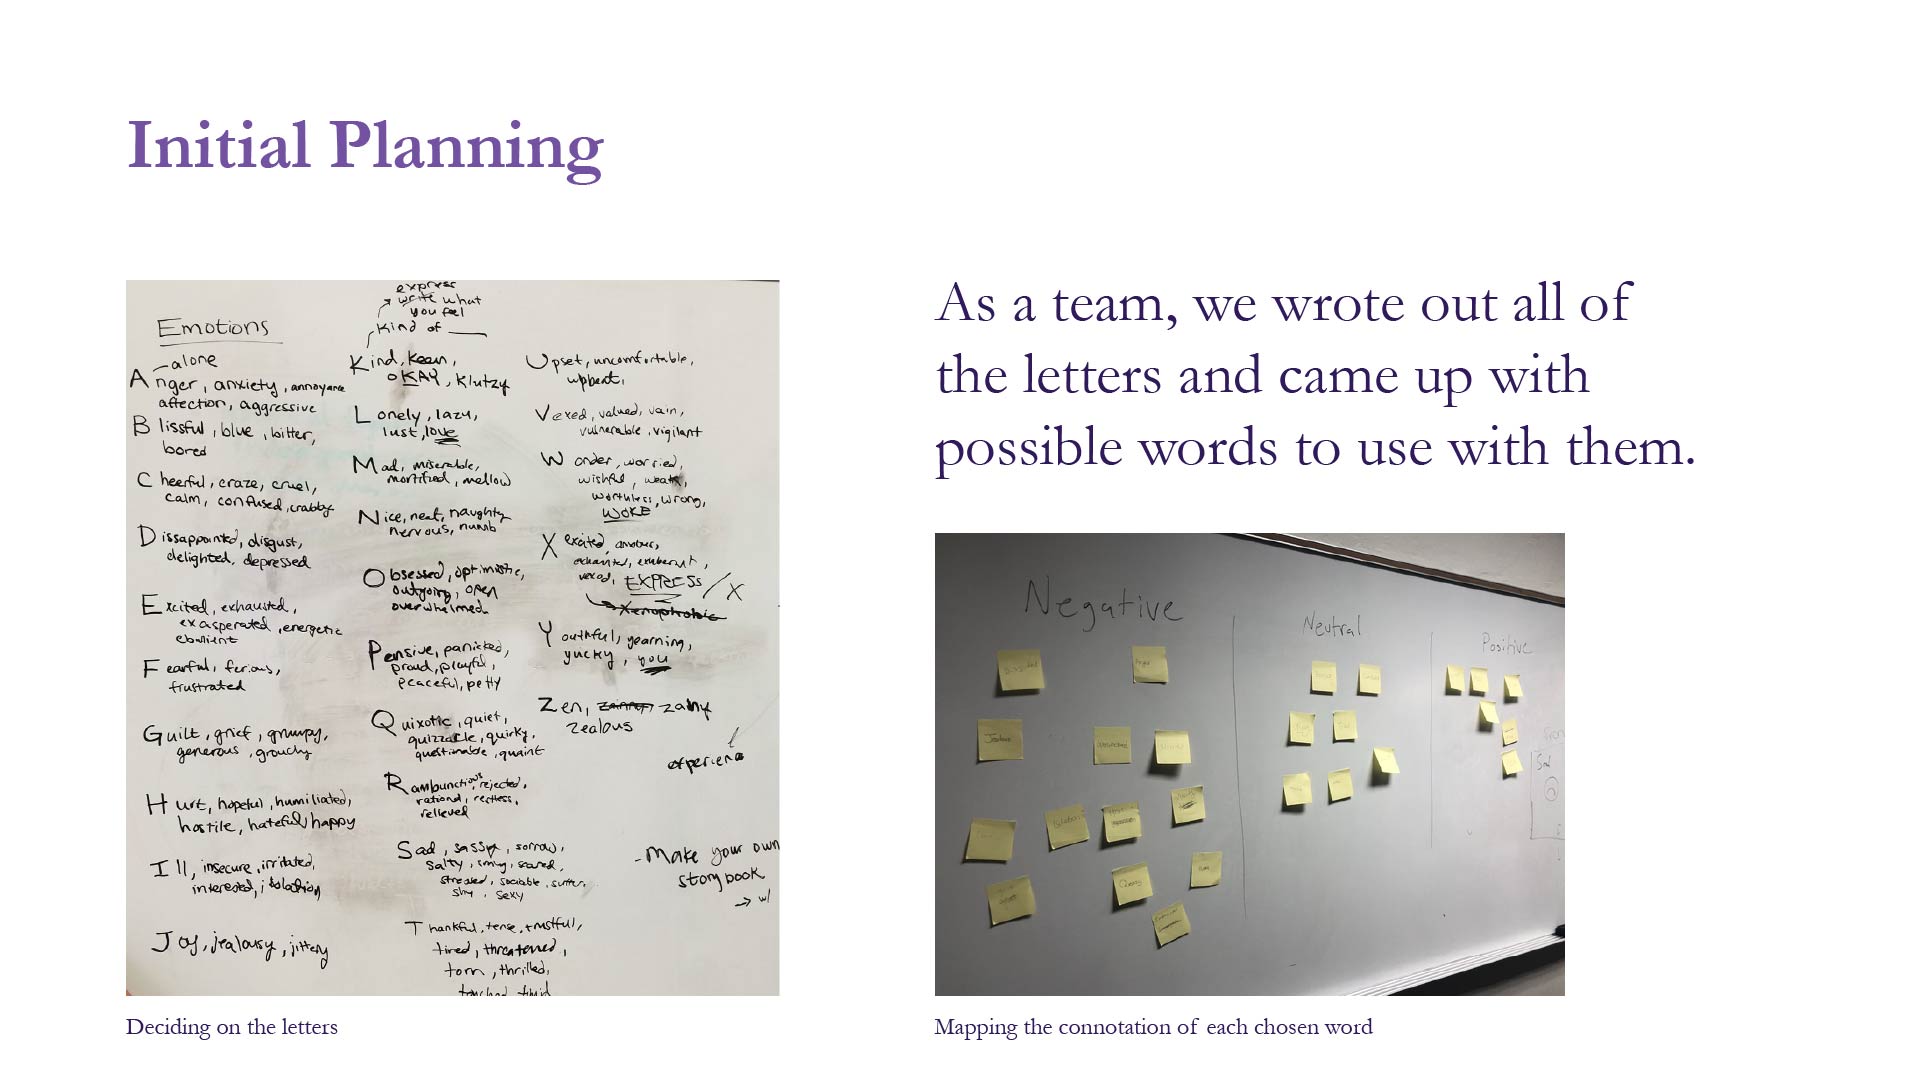 Initial Planning
express
write what
you feel
Kind of
Emotions
alone
Anger, anxiety, annoyance
affection, aggressive
Blissful, blue, bitter,
bored
Cheerful, craze, cruel,
calm, confused, crabby
Dissappointed, disgust,
delighted, depressed
Excited, exhausted,
exasperated, energetic
ebullient
Fearful, ferious,
frustrated
Guilt, grief, grumpy,
generous, grouchy
Hurt, hopeful, humiliated,
hostile, hateful, happy
Ill, insecure, irritated,
interested, isolation
Joy, jealousy, jittery
Kind, Keen,
oKAY, klutzy
Lonely, lazy,
lust, love
Mad, miserable,
mortified, mellow
Nice, neat, naughty
nervous, numb
Obsessed, optimistic,
outgoing, open
overwhelmed.
Pensive, panicked,
proud, playful,
peaceful, petty
Quixotic, quiet,
quizzacle, quirky,
questionable, quaint
Rambunctious, rejected,
rational, restless,
relieved
Sad, sassy, sorrow,
salty, smug, scared,
stressed, sociable,
shy, sexy
Thankful, tense, trustful,
tired, threatened,
torn, thrilled,
touched timid
Upset, uncomfortable,
upbeat,
Vexed, valued, vain,
vulnerable, vigilant
Wonder, worried,
wishful, weak,
worthless, wrong,
WOKE
X excited,
exhausted, exuberant,
vexed, EXPRESS / X
Xenophobic
Youthful, yearning,
yucky, you
Zen, zany
zealous
experience
- Make your own
storybook
→ w/
Deciding on the letters
As a team, we wrote out all of
the letters and came up with
possible words to use with them.
Negative
Neutral
Positive
Jealous
Isolation
Queasy
Sad
Mapping the connotation of each chosen word